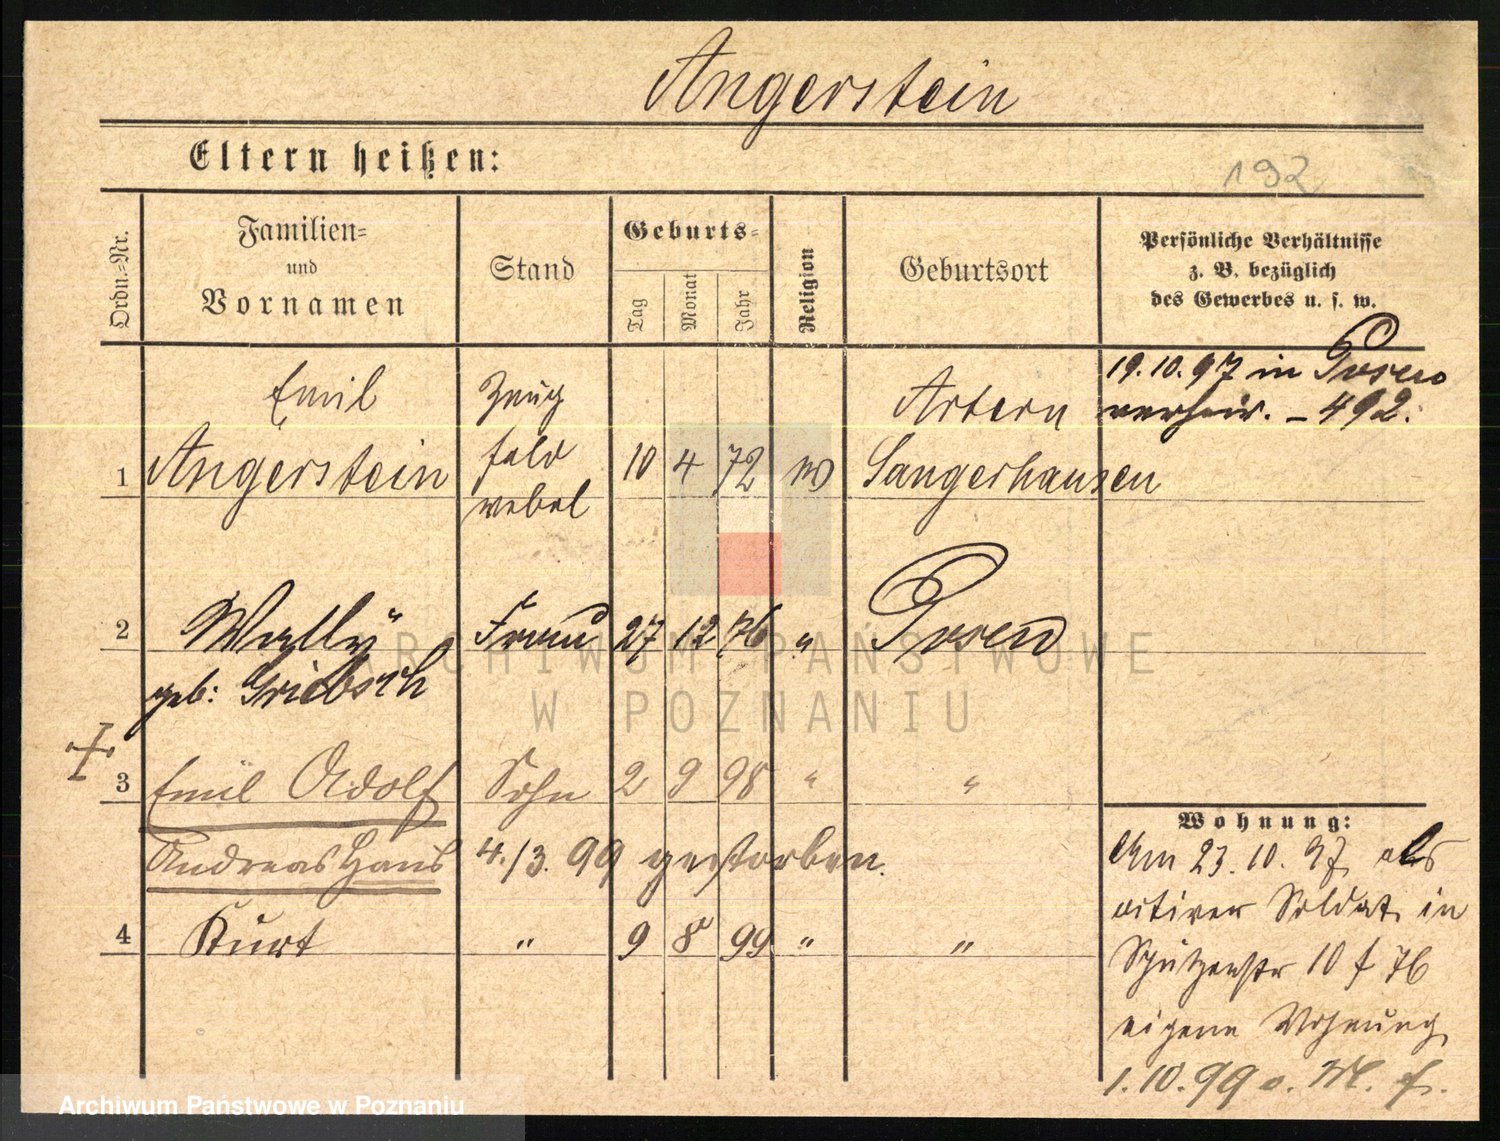 Angerstein
Eltern heißen:
192
Ordn.-Nr.
Familien-
und
Vornamen
Stand
Geburts-
Tag
Monat
Jahr
Religion
Geburtsort
Persönliche Verhältnisse
z. B. bezüglich
des Gewerbes u. s. w.
19.10.97 in Posen
verheir. - 492.
Emil
Angerstein
Zeug
feld
webel
1
10 4 72
Artern
Sangerhausen
2
Wally
geb: Griebsch
Frau 27 12 76 "
Posen
3
Emil Adolf
Sohn 2 9 98 " "
Andreas Hans
4./3. 99 gestorben.
4
Kurt " 9 8 99 " "
Wohnung:
Am 23.10.97 als
aktiver Soldat in
Schützenstr 10 f 76
eigene Wohnung
1.10.99
ARCHIWUM PAŃSTWOWE
W POZNANIU
Archiwum Państwowe w Poznaniu